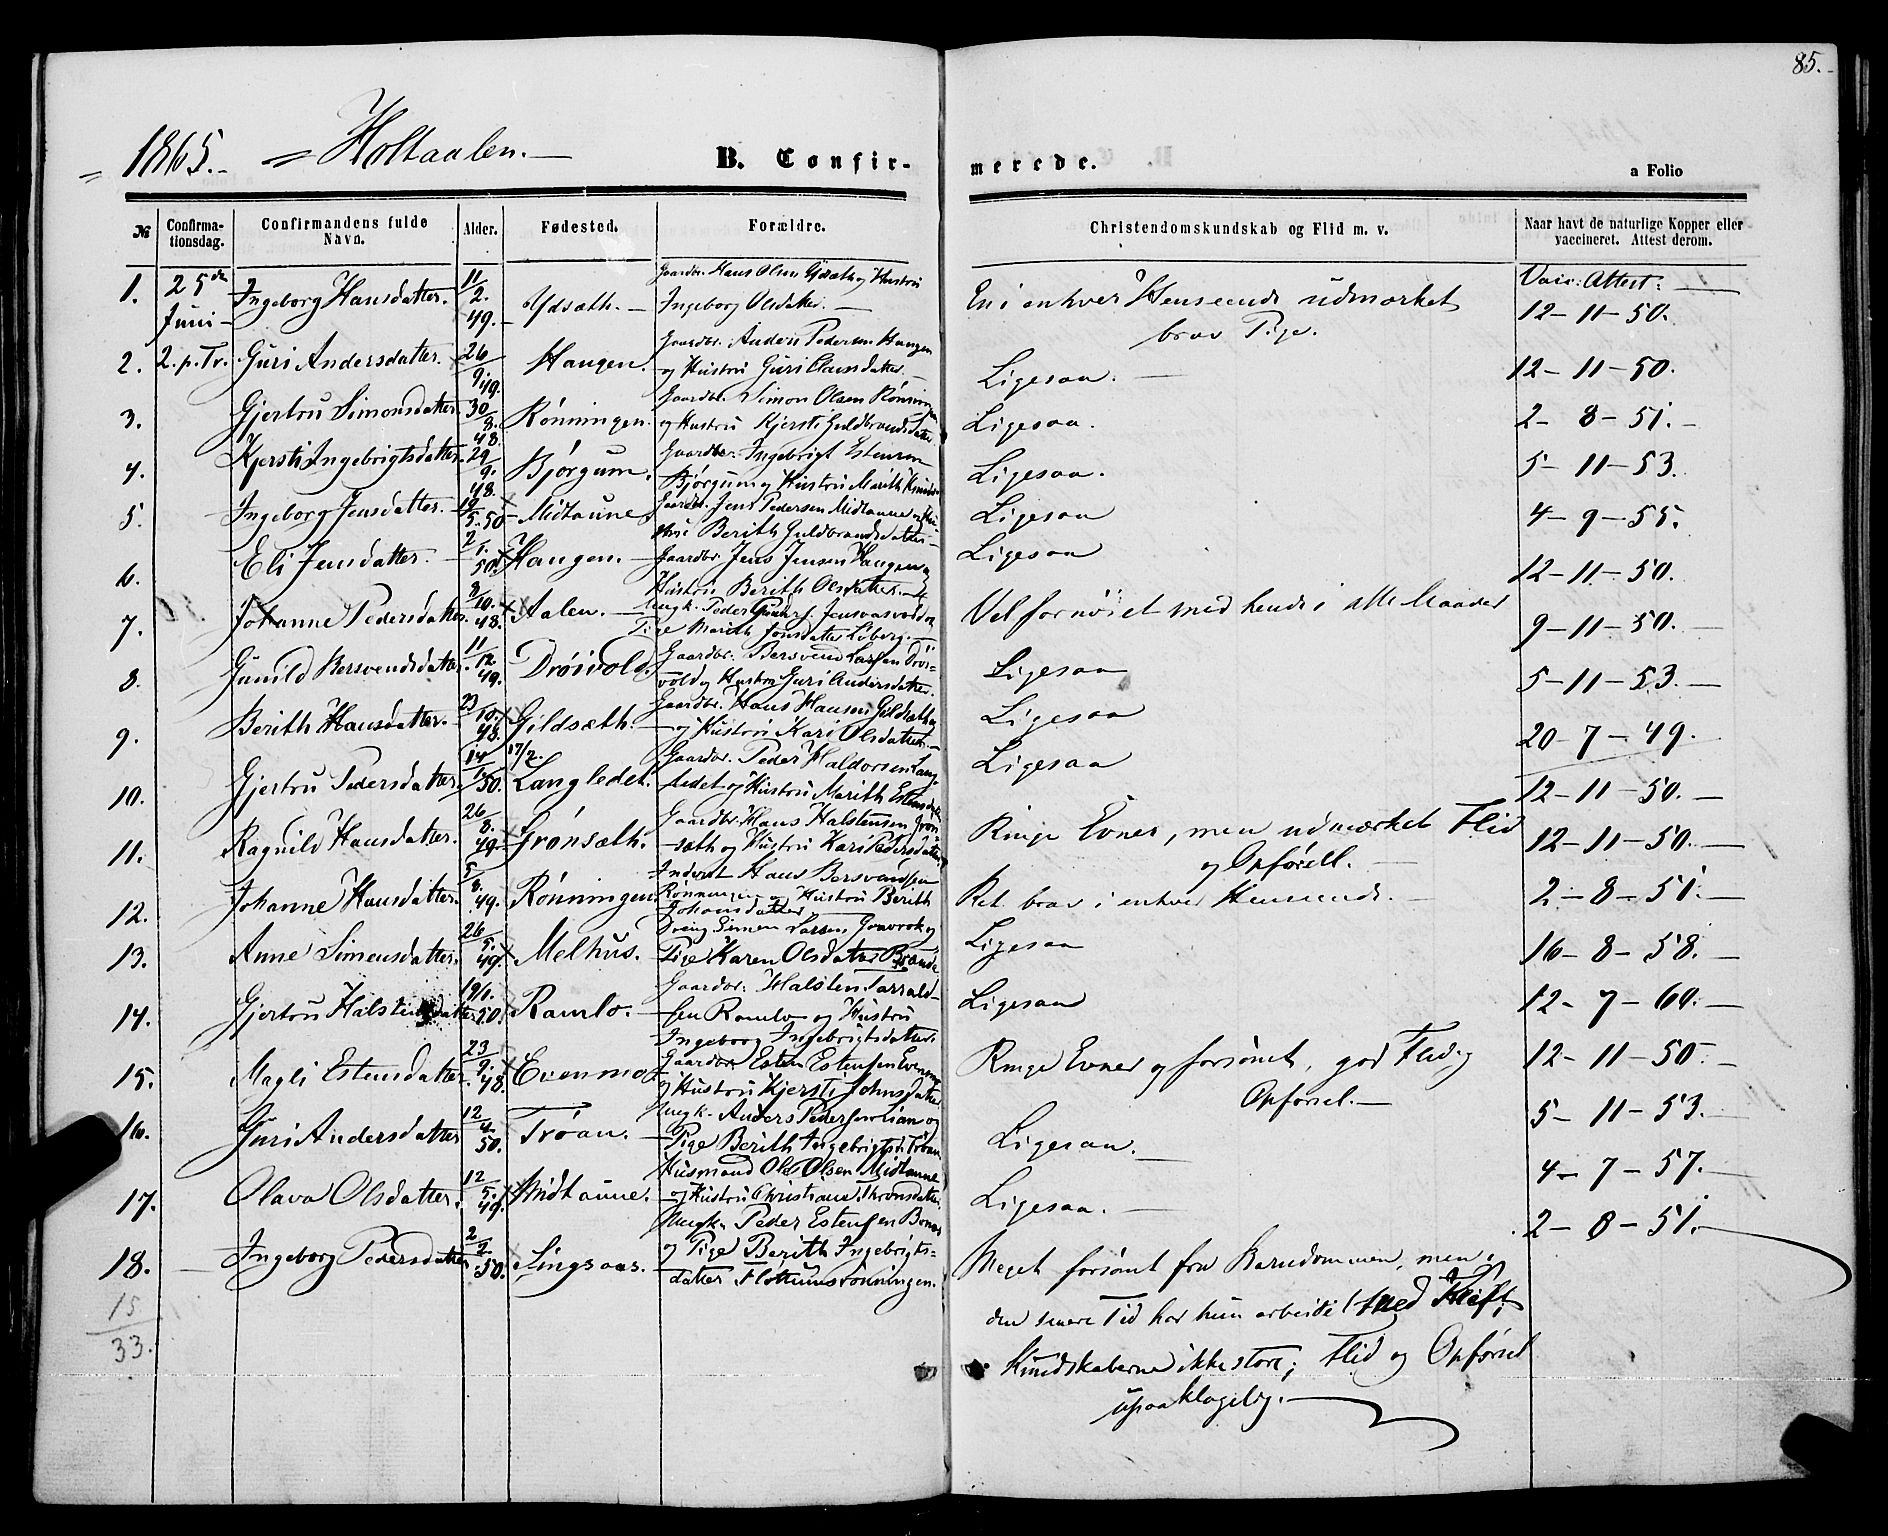 85.
1865. Holtaalen.
B. Confir-
merede.
a Folio
№ Confirma-tionsdag. Confirmandens fulde Navn. Alder. Fødested. Forældre. Christendomskundskab og Flid m. v. Naar havt de naturlige Kopper eller vaccineret. Attest derom.
Gaardbr. Hans Olsen Ydsæth og Hustru
1. 25de Juni Ingeborg Hansdatter. 11/2. 49. Ydsæth. Ingeborg Olsdatter. En i enhver Henseende udmærket Vacc. Attest:
brav Pige. 12-11-50.
Gaardbr. Anders Pedersen Haugen
2. 2. p. Tr. Guri Andersdatter. 26/9. 49. Haugen. og Hustru Guri Clausdatter. Ligesaa. 12-11-50.
Gaardbr. Simon Olsen Rønningen
3. Gjertru Simonsdatter. 30/8. 48. Rønningen. og Hustru Kjersti Guldbrandsdatter. Ligesaa. 2-8-51.
Gaardbr. Ingebrigt Estensen
4. Kjersti Ingebrigtsdatter. 29/9. 48. Bjørgum. Bjørgum og Hustru Marith Ligesaa. 5-11-53.
Gaardbr. Jens Pedersen Midtaune og Hu-
5. Ingeborg Jensdatter. 19/5. 50 Midtaune stru Berith Guldbrandsdatter Ligesaa 4-9-55.
Gaardbr. Jens Jensen Haugen og
6. Eli Jensdatter. 2/1. 50. Haugen. Hustru Berith Olsdatter. Ligesaa 12-11-50.
Ungk. Peder Jensvoldsen
7. Johanne Pedersdatter. 8/10. 48. Aalen. Pige Marith Jonsdatter Løberg. Vel fornøiet med hende i alle Maader 9-11-50.
Gaardbr. Bersvend Larsen Drøi-
8. Gunild Bersvendsdatter. 11/12. 49. Drøivold. vold og Hustru Guri Andersdatter. Ligesaa 5-11-53.
Gaardbr. Hans Hansen Gildsæth
9. Berith Hansdatter. 23/10. 48. Gildsæth. og Hustru Kari Olsdatter. Ligesaa 20-7-49.
17/2. Gaardbr. Peder Haldorsen Lang-
10. Gjertru Pedersdatter. 14/1. 50. Langledet. ledet og Hustru Marith Estensdatter Ligesaa 12-11-50.
Gaardbr. Hans Halstensen Grøn-
11. Ragnild Hansdatter. 26/8. 49. Grønsæth. sæth og Hustru Kari Pedersdatter Ringe Evner, men udmærket Flid 12-11-50.
og Opførsel.
Inderst Hans Bersvendsen
12. Johanne Hansdatter. 5/8. 49. Rønningen. Rønningen og Hustru Berith Ret brav i enhver Henseende. 2-8-51.
Johansdatter
Dreng Simen Larsen Graarok og
13. Anne Simensdatter. 26/5. 49. Melhus. Pige Karen Olsdatter Ligesaa 16-8-58.
Gaardbr. Halsten Tarrald-
14. Gjertru Halstensdatter 19/1. 50. Ramlo. sen Ramlo og Hustru Ligesaa 12-7-60.
Ingeborg Ingebrigtsdatter.
Gaardbr. Esten Estensen Evenmo
15. Magli Estensdatter. 23/9. 48. Evenmo og Hustru Kjersti Johnsdatter. Ringe Evner og forsømt, god Flid og 12-11-50.
Opførsel.
Ungk. Anders Pedersen Lian og
16. Guri Andersdatter 12/4. 50. Trøan. Pige Berith Ingebrigtsd. Trøan. Ligesaa. 5-11-53.
Husmand Ole Olsen Midtaune
17. Olava Olsdatter. 12/5. 49. Midtaune. og Hustru Christiane Thronsdatter. Ligesaa. 4-7-57.
Ungk. Peder Estensen
18. Ingeborg Pedersdatter 2/2. 50. Singsaas. og Pige Berith Ingebrigts- Meget forsømt fra Barndommen, men i 2-8-51.
datter Fløttumsrønningen.
15 den senere Tid har hun arbeidet med Kraft;
33. Kundskaberne ikke store; Flid og Opførsel
upaaklagelig.